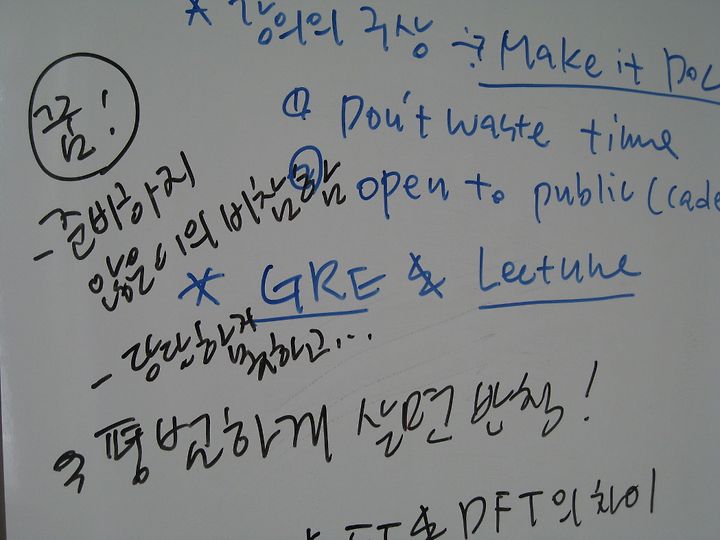 * 강의의 구상 → Make it Doc
꿈!
① Don't waste time
② open to public (cade
- 준비하지
않은 이의 비참함
* GRE & Lecture
- 당당하게
못하고...
평범하게 살면 반칙!
FT & DFT의 차이